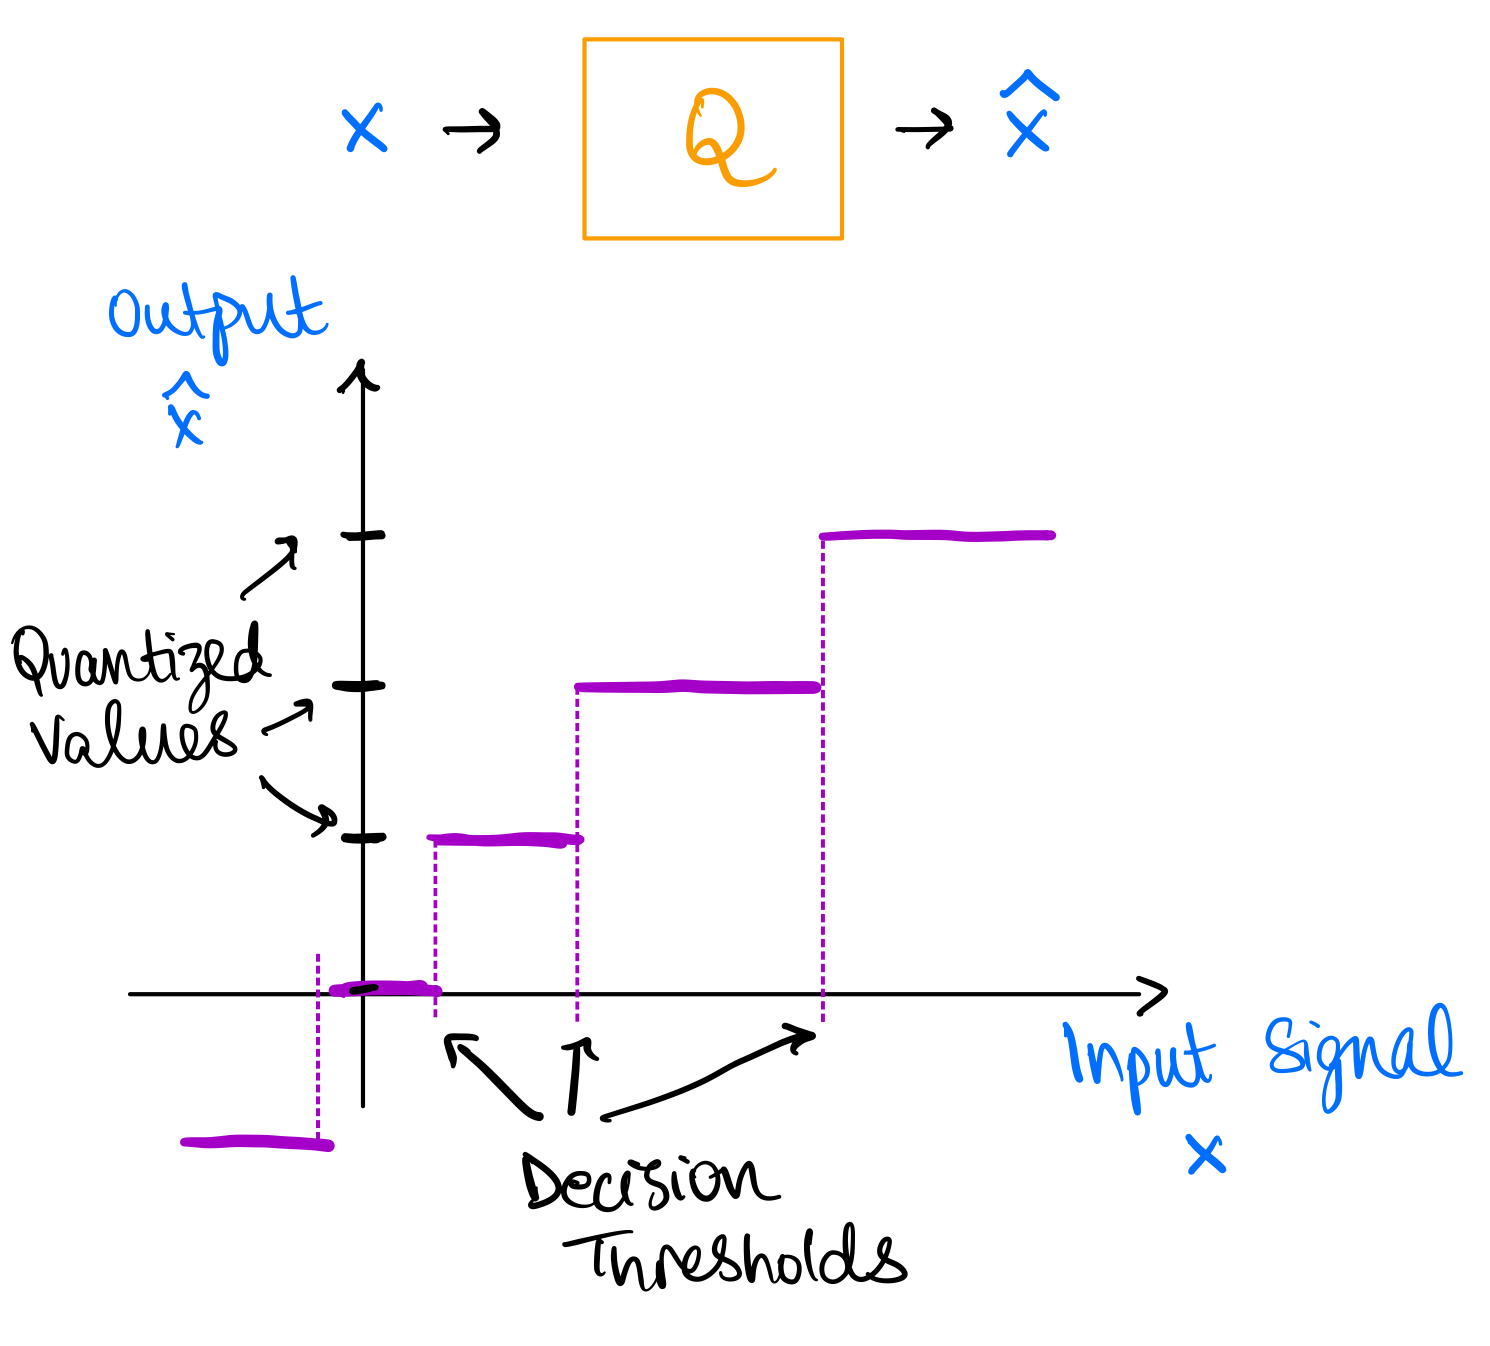 x → Q → x̂
Output
x̂
Quantized
Values
Input Signal
x
Decision
Thresholds